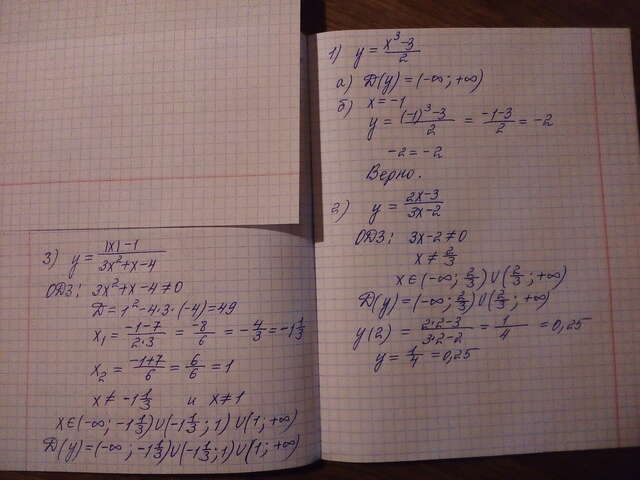 1) y = (x³-3)/2
а) D(y) = (-∞; +∞)
б) x = -1
y = ((-1)³-3)/2 = (-1-3)/2 = -2
-2 = -2
Верно.
2) y = (2x-3)/(3x-2)
ОДЗ: 3x-2 ≠ 0
x ≠ 2/3
x ∈ (-∞; 2/3) ∪ (2/3; +∞)
D(y) = (-∞; 2/3) ∪ (2/3; +∞)
y(2) = (2·2-3)/(3·2-2) = 1/4 = 0,25
y = 1/4 = 0,25
3) y = (|x|-1)/(3x²+x-4)
ОДЗ: 3x²+x-4 ≠ 0
D = 1²-4·3·(-4) = 49
x₁ = (-1-7)/(2·3) = -8/6 = -4/3 = -1 1/3
x₂ = (-1+7)/6 = 6/6 = 1
x ≠ -1 1/3 и x ≠ 1
x ∈ (-∞; -1 1/3) ∪ (-1 1/3; 1) ∪ (1; +∞)
D(y) = (-∞; -1 1/3) ∪ (-1 1/3; 1) ∪ (1; +∞)